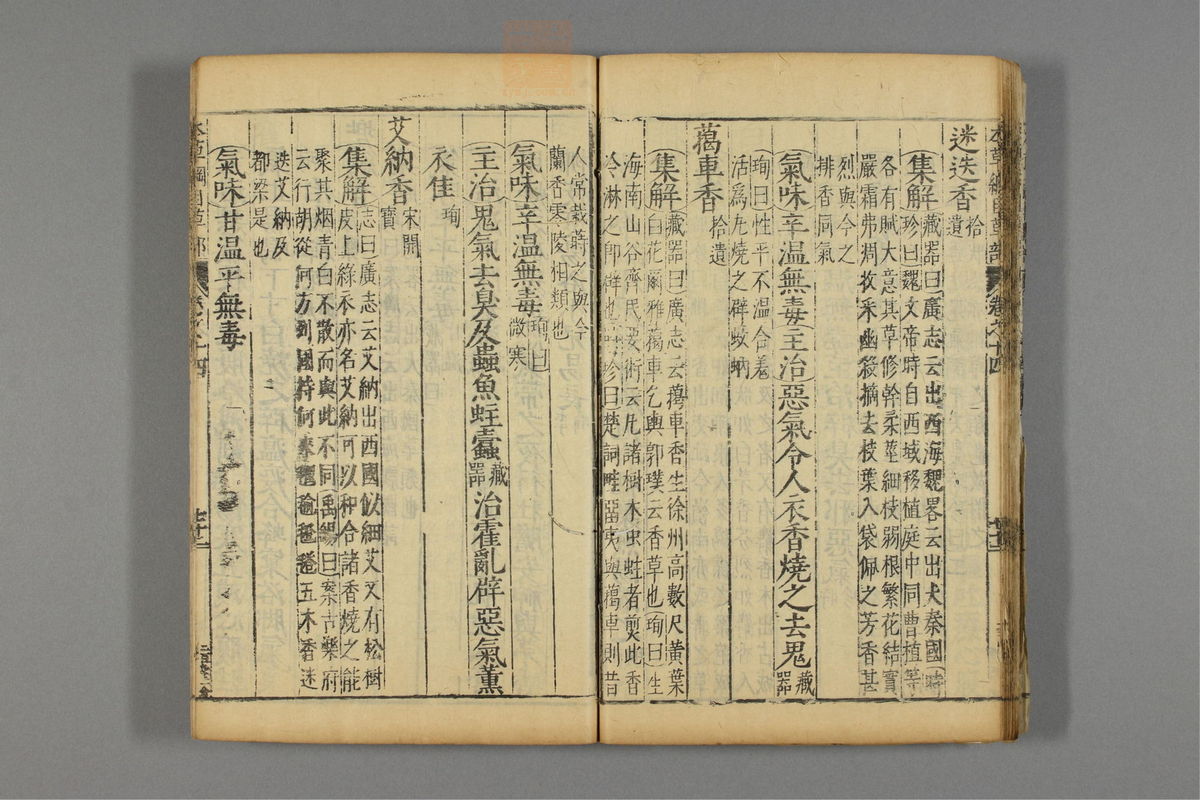 本草綱目草部 卷之十四
迷迭香 拾遺
集解 藏器曰廣志云出西海魏畧云出大秦國時
珍曰魏文帝時自西域移植庭中同曹植等
各有賦大意其草修幹柔莖細枝弱根繁花結實
嚴霜弗凋收采幽殺摘去枝葉入袋佩之芳香甚
烈與今之
排香同氣
氣味辛温無毒主治惡氣令人衣香燒之去鬼藏器
珣曰性平不温合羗
活為丸燒之辟蚊蚋
藒車香 拾遺
集解 藏器曰廣志云藒車香生徐州高數尺黄葉
白花爾雅藒車乞輿郭璞云香草也珣曰生
海南山谷齊民要術云凡諸樹木虫蛀者煎此香
冷淋之即辟也時珍曰楚詞畦留夷與藒車則昔
人常栽蒔之與今
蘭香零陵相類也
氣味辛温無毒珣曰微寒
主治鬼氣去臭及蟲魚蛀蠹藏器治霍亂辟惡氣薰
衣佳珣
艾納香 宋開寶
集解 志曰廣志云艾納出西國似細艾又有松樹
皮上綠衣亦名艾納可以和合諸香燒之能
聚其烟青白不散而與此不同禹錫曰案古樂府
云行胡從何方列國持何來氍毹㲪㲪五木香迷
迭艾納及
都梁是也
氣味甘温平無毒
本草綱目草部 卷之十四